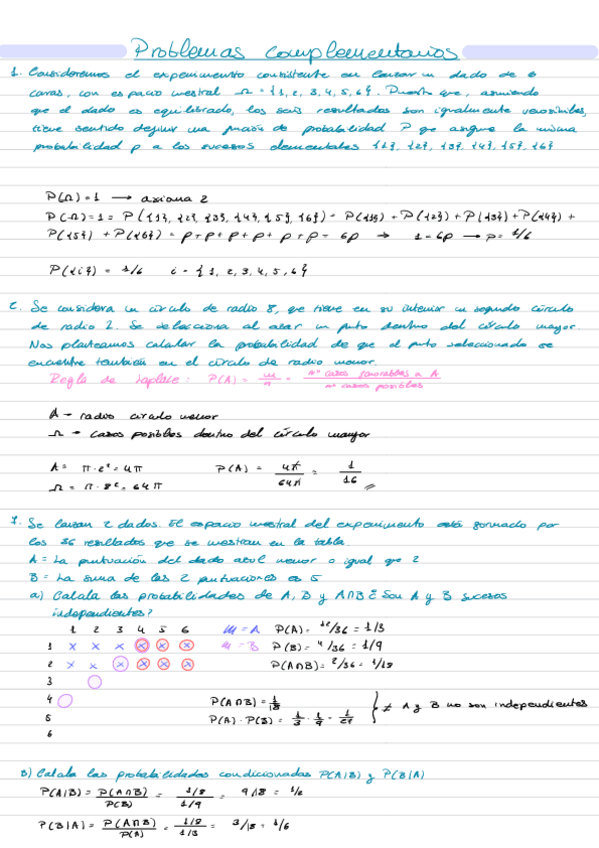 Problemas complementarios
1. Consideremos el experimento consistente en lanzar un dado de 6
caras, con espacio mestral Ω = {1, 2, 3, 4, 5, 6}. Puesto que, asumiendo
que el dado es equilibrado, los seis resultados son igualmente verosímiles,
tiene sentido definir una función de probabilidad P que asigne la misma
probabilidad p a los sucesos elementales {1}, {2}, {3}, {4}, {5}, {6}
P(Ω) = 1 → axioma 2
P(Ω) = 1 = P({1}, {2}, {3}, {4}, {5}, {6}) = P({1}) + P({2}) + P({3}) + P({4}) +
P({5}) + P({6}) = p + p + p + p + p + p = 6p → 1 = 6p → p = 1/6
P({i}) = 1/6 i = {1, 2, 3, 4, 5, 6}
2. Se considera un círculo de radio 8, que tiene en su interior un segundo círculo
de radio 2. Se selecciona al azar un pto dentro del círculo mayor.
Nos planteamos calcular la probabilidad de que el pto seleccionado se
encuentre también en el círculo de radio menor.
Regla de Laplace: P(A) = m/n = nº casos favorables a A / nº casos posibles
A → radio circulo menor
Ω → casos posibles dentro del círculo mayor
A = π·2² = 4π P(A) = 4π/64π = 1/16
Ω = π·8² = 64π
7. Se lanzan 2 dados. El espacio mestral del experimento está formado por
los 36 resultados que se mestran en la tabla.
A = La puntuación del dado azul menor o igual que 2
B = La suma de las 2 puntuaciones es 5
a) Calcula las probabilidades de A, B y A∩B ¿Son A y B sucesos
independientes?
1 2 3 4 5 6 m = A P(A) = 12/36 = 1/3
1 x x x x x x m = B P(B) = 4/36 = 1/9
2 x x x x x x P(A∩B) = 2/36 = 1/18
3
4 P(A∩B) = 1/18 } ≠ A y B no son independientes
5 P(A) · P(B) = 1/3 · 1/9 = 1/27
6
B) Calcula las probabilidades condicionadas P(A|B) y P(B|A)
P(A|B) = P(A∩B)/P(B) = 1/18 / 1/9 = 9/18 = 1/2
P(B|A) = P(A∩B)/P(A) = 1/18 / 1/3 = 3/18 = 1/6